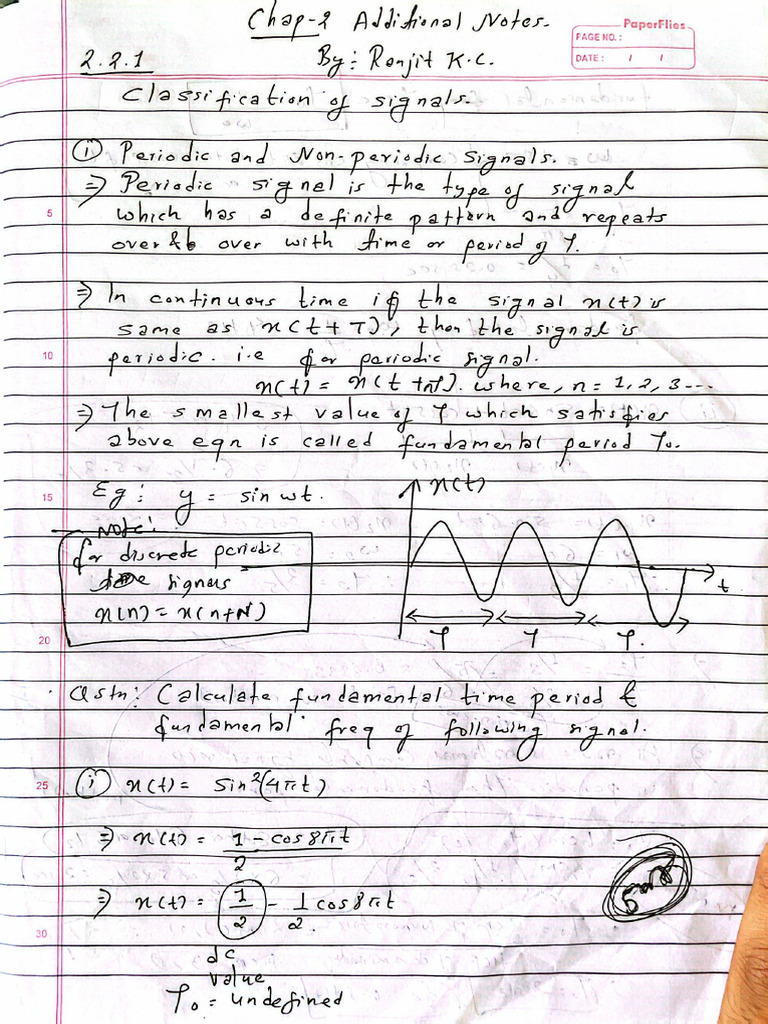 Chap-2 Additional Notes.
PaperFlies
PAGE NO.:
DATE: / /
By: Ranjit K.C.
2.2.1
Classification of signals.
(i) Periodic and Non-periodic Signals.
⇒ Periodic signal is the type of signal
5
which has a definite pattern and repeats
over & over with time or period of T.
⇒ In continuous time if the signal x(t) is
same as x(t+T), then the signal is
10
periodic. i.e for periodic signal.
x(t) = x(t+nT). where, n = 1, 2, 3 ---
⇒ The smallest value of T which satisfies
above eqn is called fundamental period T₀.
15
Eg: y = sin wt.
x(t)
Note:
for discrete periodic
signals
x(n) = x(n+N)
t
20
T T T.
Qstn: Calculate fundamental time period &
fundamental freq of following signal.
25
(i) x(t) = sin²(4πt)
⇒ x(t) = 1 - cos8πt / 2
⇒ x(t) = 1/2 - 1/2 cos8πt
30
dc
value
T₀ = undefined